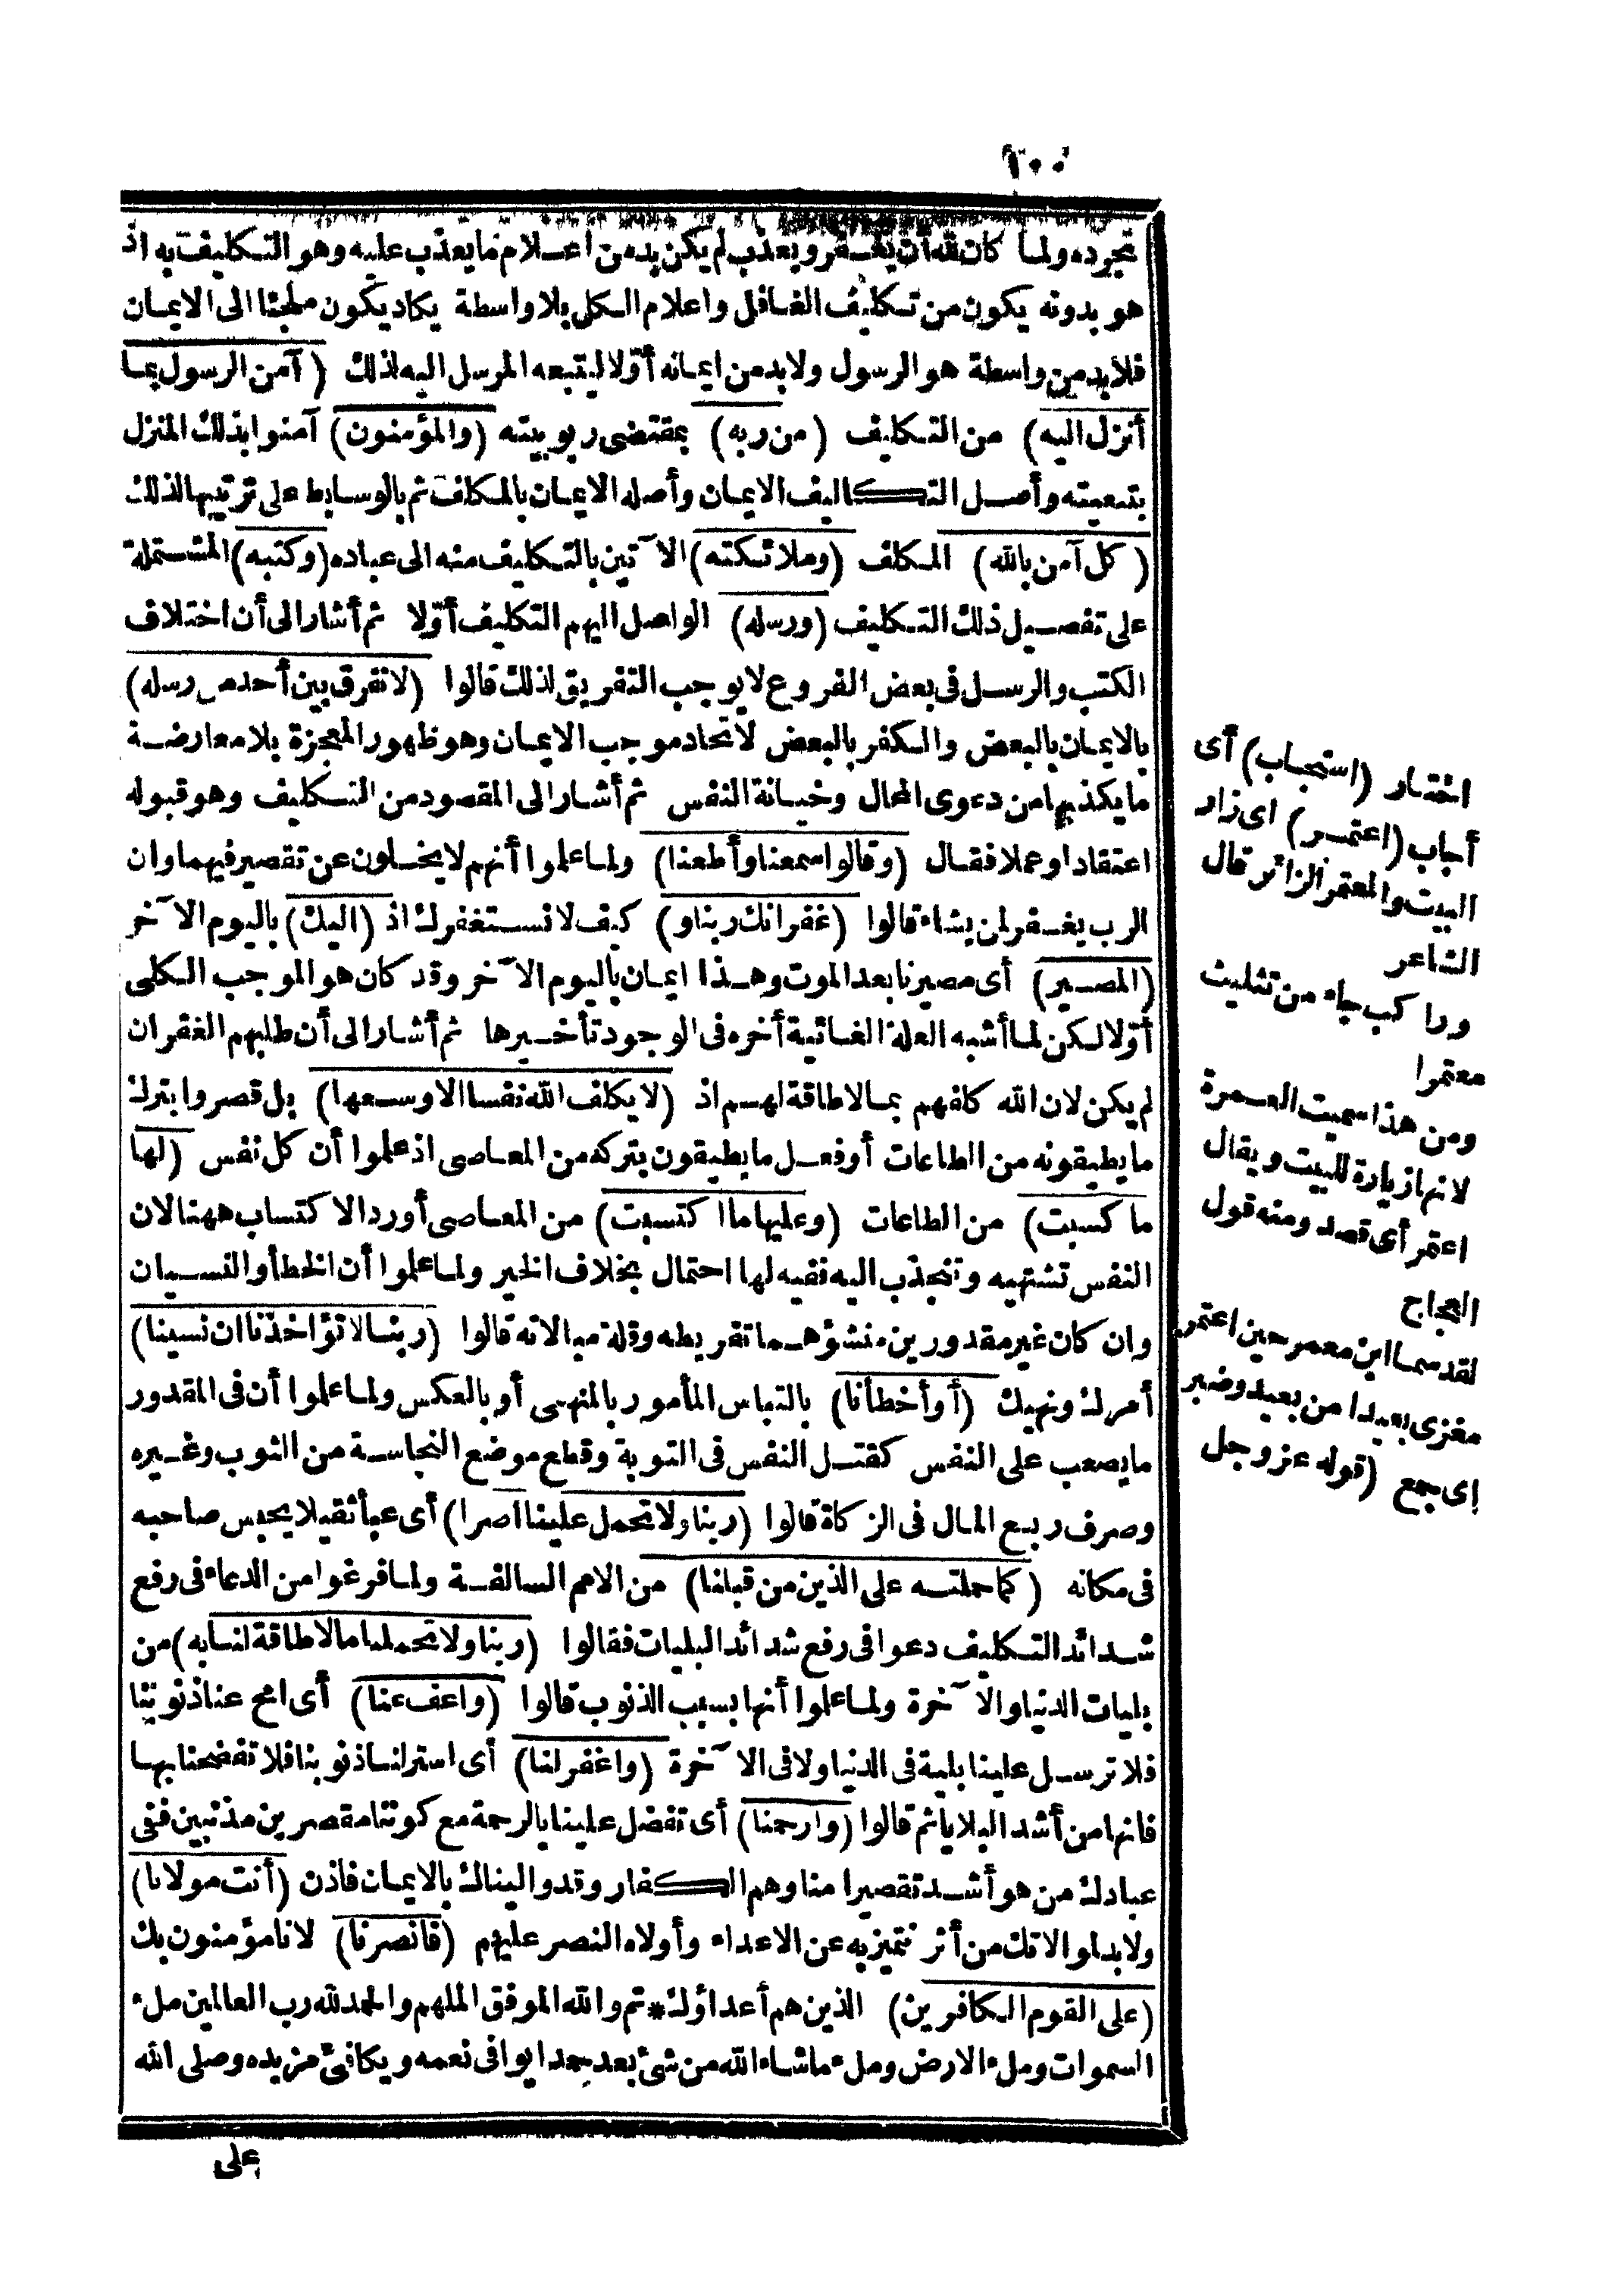 ١٠٠
بمجرده ولما كان لله أن يغفر ويعذب لم يكن بد من اعلام ما يعذب عليه وهو التكليف به اذ
هو بدونه يكون من تكليف الغافل واعلام الكل بلا واسطة يكاد يكون ملجئا الى الايمان
فلا بد من واسطة هو الرسول ولا بد من ايمانه أوّلا ليتبعه المرسل اليه لذلك (آمن الرسول بما
أنزل اليه) من التكليف (من ربه) بمقتضى ربوبيته (والمؤمنون) آمنوا بذلك المنزل
بتبعيته وأصل التكاليف الايمان وأصله الايمان بالمكلف ثم بالوسايط على ترتيبها لذلك
(كل آمن بالله) المكلف (وملائكته) الآتين بالتكليف منه الى عباده (وكتبه) المشتملة
على تفصيل ذلك التكليف (ورسله) الواصل اليهم التكليف أوّلا ثم أشار الى أن اختلاف
الكتب والرسل فى بعض الفروع لا يوجب التفريق لذلك قالوا (لا نفرق بين أحد من رسله)
بالايمان بالبعض والكفر بالبعض لاتحاد موجب الايمان وهو ظهور المعجزة بلا معارضة
ما يكذبها من دعوى المحال وخيانة النفس ثم أشار الى المقصود من التكليف وهو قبوله
اعتقادا وعملا فقال (وقالوا سمعنا وأطعنا) ولما علموا أنهم لا يخلون عن تقصير فيهما وان
الرب يغفر لمن يشاء قالوا (غفرانك ربنا و) كيف لا نستغفرك اذ (اليك) باليوم الآخر
(المصير) أى مصيرنا بعد الموت وهذا ايمان باليوم الآخر وقد كان هو الموجب الكلى
أوّلا لكن لما أشبه العلة الغائية أخره فى الوجود تأخيرها ثم أشار الى أن طلبهم الغفران
لم يكن لان الله كلفهم بما لا طاقة لهم اذ (لا يكلف الله نفسا الا وسعها) بل قصروا بترك
ما يطيقونه من الطاعات أو فعل ما يطيقون بتركه من المعاصى اذ علموا أن كل نفس (لها
ما كسبت) من الطاعات (وعليها ما اكتسبت) من المعاصى أورد الاكتساب ههنا لان
النفس تشتهيه وتنجذب اليه ففيه لها احتمال بخلاف الخير ولما علموا أن الخطأ والنسيان
وان كان غير مقدورين منشؤهما تفريطه وقلة مبالاته قالوا (ربنا لا تؤاخذنا ان نسينا)
أمرك ونهيك (أو أخطأنا) بالتباس المأمور بالمنهى أو بالعكس ولما علموا أن فى المقدور
ما يصعب على النفس كقتل النفس فى التوبة وقطع موضع النجاسة من الثوب وغيره
وصرف ربع المال فى الزكاة قالوا (ربنا ولا تحمل علينا اصرا) أى عبأ ثقيلا يحبس صاحبه
فى مكانه (كما حملته على الذين من قبلنا) من الامم السالفة ولما فرغوا من الدعاء فى رفع
شدائد التكليف دعوا فى رفع شدائد البليات فقالوا (ربنا ولا تحملنا ما لا طاقة لنا به) من
بليات الدنيا والآخرة ولما علموا أنها بسبب الذنوب قالوا (واعف عنا) أى امح عنا ذنوبنا
فلا ترسل علينا بلية فى الدنيا ولا فى الآخرة (واغفر لنا) أى استر لنا ذنوبنا فلا تفضحنا بها
فانها من أشد البلايا ثم قالوا (وارحمنا) أى تفضل علينا بالرحمة مع كوننا مقصرين مذنبين ففى
عبادك من هو أشد تقصيرا منا وهم الكفار وقد والينالك بالايمان فاذن (أنت مولانا)
ولا بد لموالاتك من أثر نتميز به عن الاعداء وأولاه النصر عليهم (فانصرنا) لانا مؤمنون بك
(على القوم الكافرين) الذين هم أعداؤك * تم والله الموفق الملهم والحمد لله رب العالمين ملء
السموات وملء الارض وملء ما شاء الله من شئ بعد حمدا يوافى نعمه ويكافئ مزيده وصلى الله
على
اختار (استجاب) أى
أجاب (اعتمر) اى زار
البيت والمعتمر الزائر قال
الشاعر
وراكب جاء من تثليث
معتمرا
ومن هذا سميت العمرة
لانها زيارة للبيت ويقال
اعتمر أى قصد ومنه قول
العجاج
لقد سما ابن معمر حين اعتمر
مغزى بعيدا من بعيد وضبر
اى جمع (قوله عز وجل